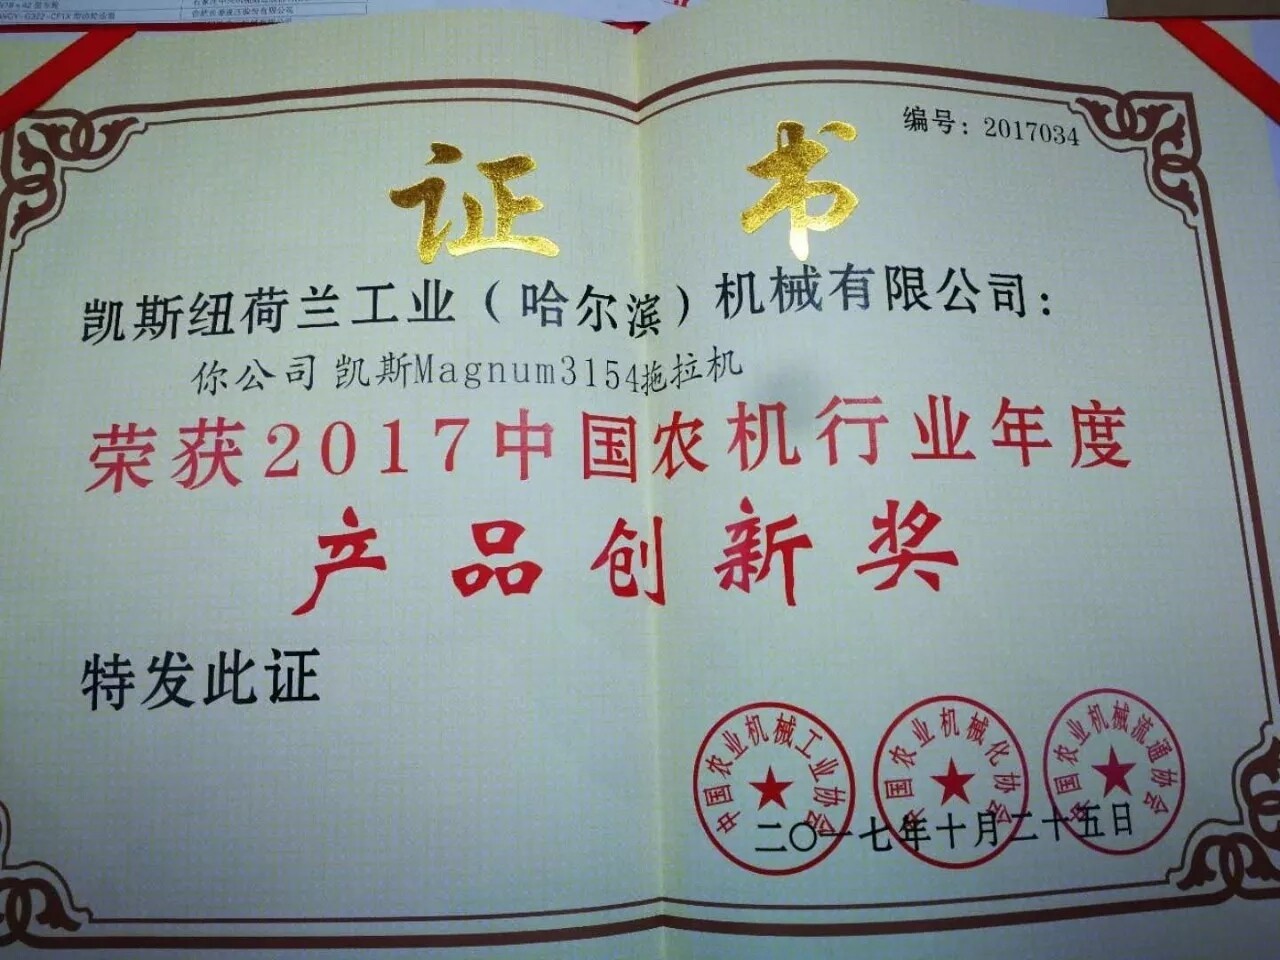 编号：2017034
证书
凯斯纽荷兰工业（哈尔滨）机械有限公司：
你公司 凯斯Magnum3154拖拉机
荣获2017中国农机行业年度
产品创新奖
特发此证
中国农业机械工业协会
中国农业机械化协会
中国农业机械流通协会
二〇一七年十月二十五日